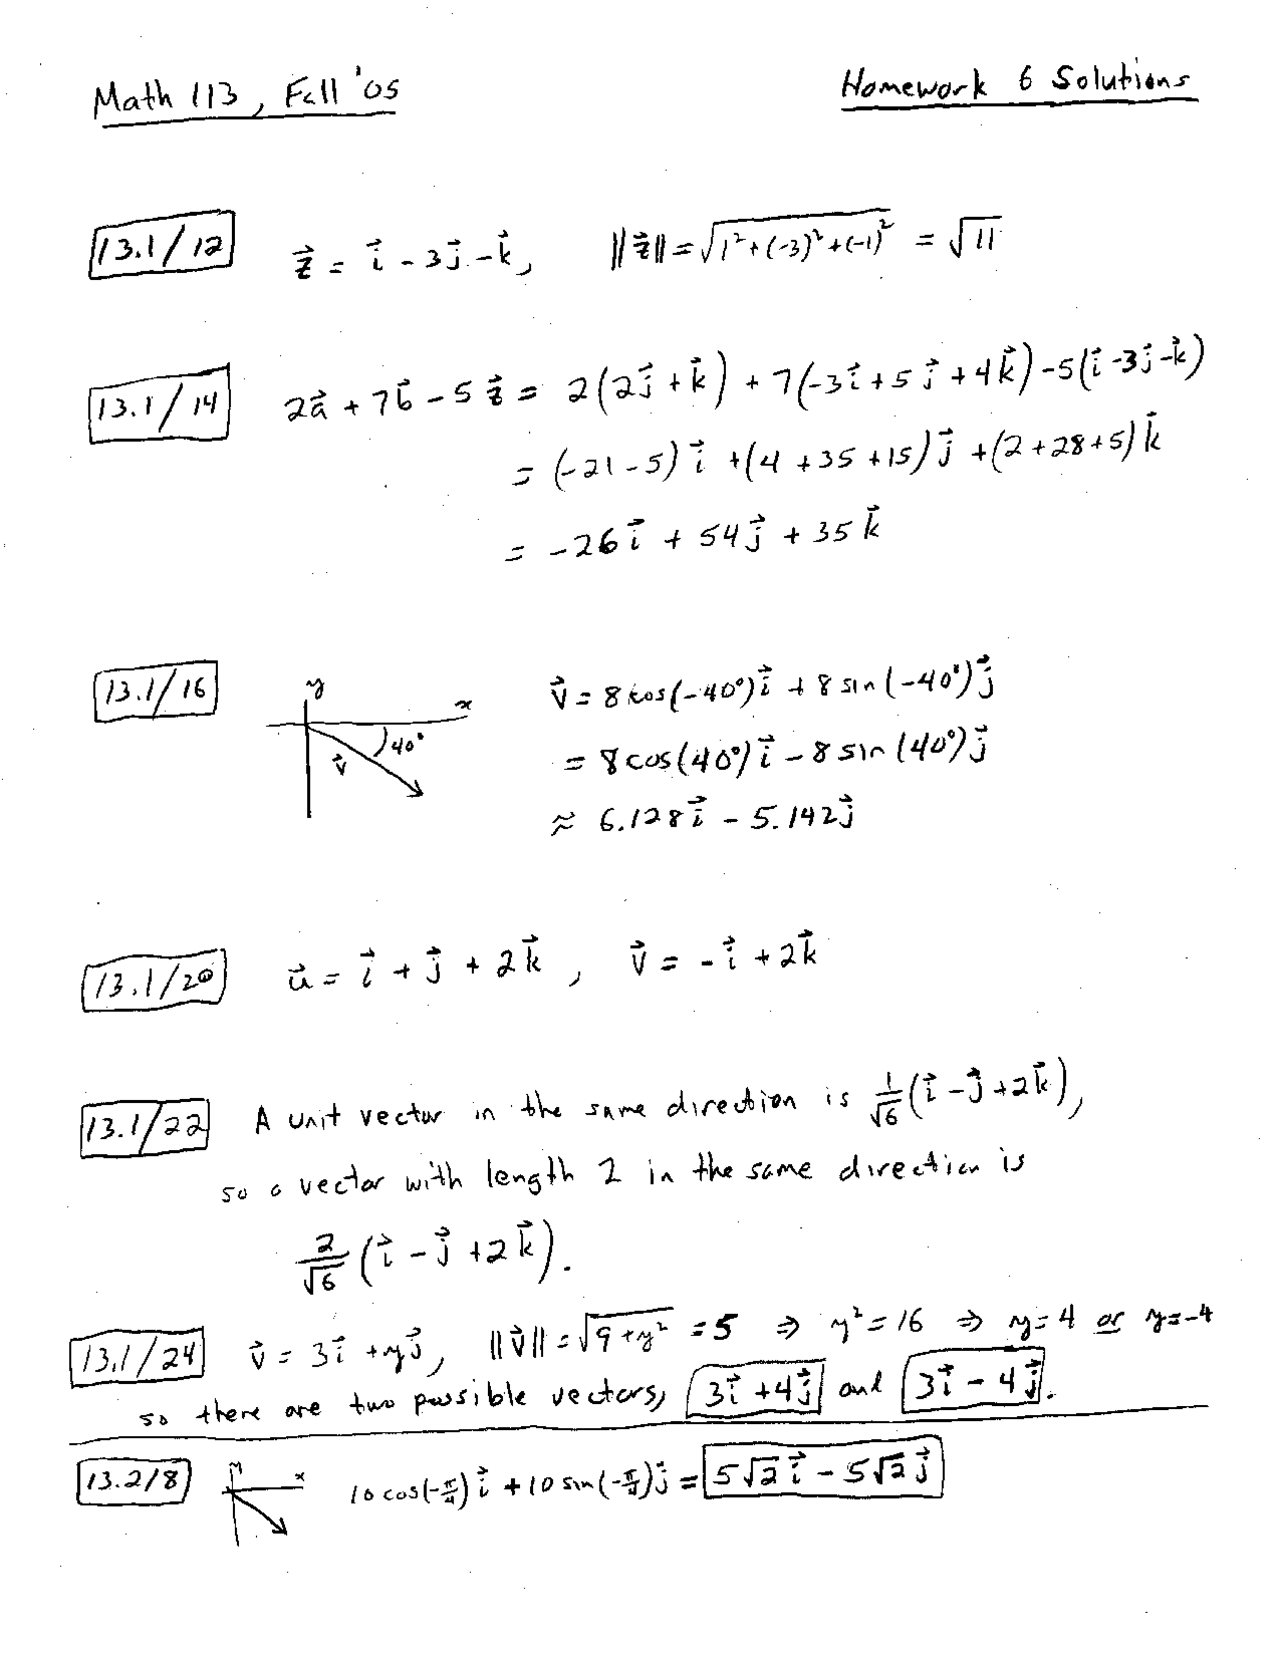 Math 113, Fall '05
Homework 6 Solutions
13.1/12 z⃗ = i⃗ - 3j⃗ - k⃗, ||z⃗|| = √(1² + (-3)² + (-1)²) = √11
13.1/14 2a⃗ + 7b⃗ - 5z⃗ = 2(2j⃗ + k⃗) + 7(-3i⃗ + 5j⃗ + 4k⃗) - 5(i⃗ - 3j⃗ - k⃗)
= (-21 - 5)i⃗ + (4 + 35 + 15)j⃗ + (2 + 28 + 5)k⃗
= -26i⃗ + 54j⃗ + 35k⃗
13.1/16 y x 40° v⃗ v⃗ = 8cos(-40°)i⃗ + 8sin(-40°)j⃗
= 8cos(40°)i⃗ - 8sin(40°)j⃗
≈ 6.128i⃗ - 5.142j⃗
13.1/20 u⃗ = i⃗ + j⃗ + 2k⃗, v⃗ = -i⃗ + 2k⃗
13.1/22 A unit vector in the same direction is 1/√6 (i⃗ - j⃗ + 2k⃗),
so a vector with length 2 in the same direction is
2/√6 (i⃗ - j⃗ + 2k⃗).
13.1/24 v⃗ = 3i⃗ + yj⃗, ||v⃗|| = √(9 + y²) = 5 ⇒ y² = 16 ⇒ y = 4 or y = -4
so there are two possible vectors, 3i⃗ + 4j⃗ and 3i⃗ - 4j⃗.
13.2/8 y x 10cos(-π/4)i⃗ + 10sin(-π/4)j⃗ = 5√2 i⃗ - 5√2 j⃗